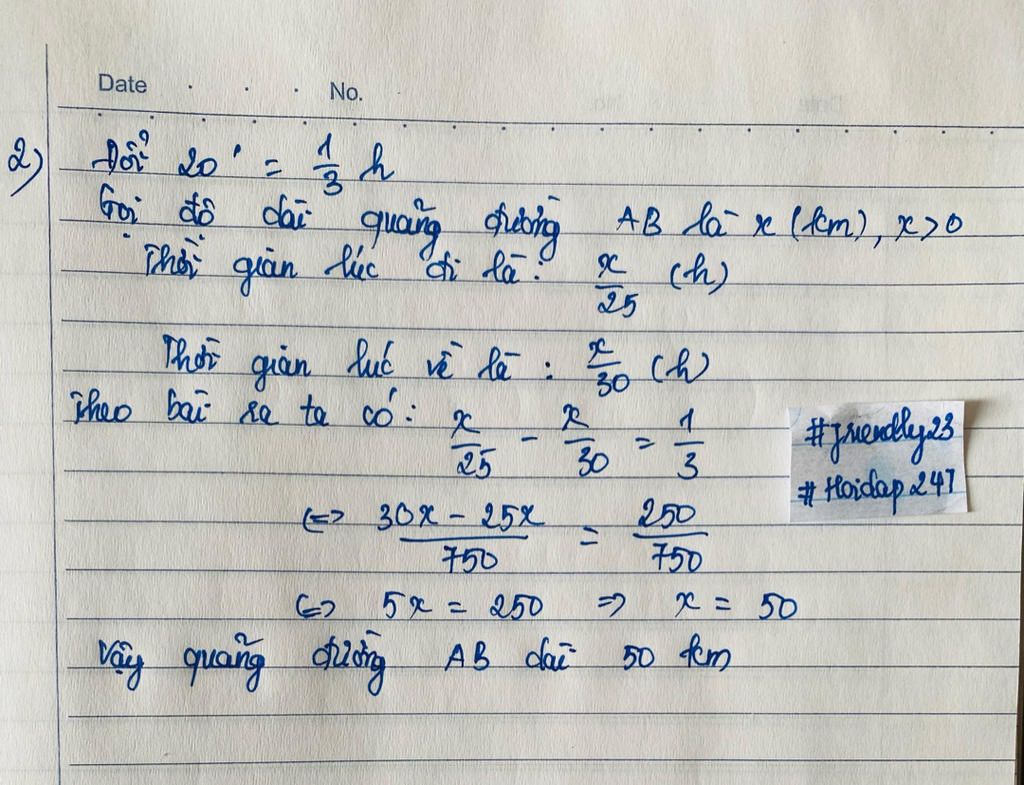 Date . . . No.
2) Đổi 20' = 1/3 h
Gọi độ dài quãng đường AB là x (km), x>0
Thời gian lúc đi là: x/25 (h)
Thời gian lúc về là : x/30 (h)
Theo bài ra ta có: x/25 - x/30 = 1/3
#friendly23
# Hoidap247
<=> 30x - 25x/750 = 250/750
<=> 5x = 250 => x = 50
Vậy quãng đường AB dài 50 km